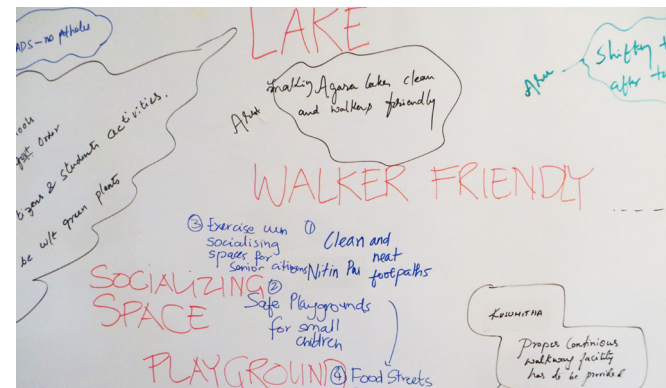 ADS - no potholes
LAKE
making Agara lake clean
and walkers friendly
Shifting
after
ools
order
tizens & students activities.
be w/t green plants
WALKER FRIENDLY
③ Exercise cum
socialising
spaces for
senior citizens
① Clean and
neat
footpaths
Nitin Pai
SOCIALIZING
SPACE
② Safe Playgrounds
for small
children
PLAYGROUND
④ Food Streets
KULUMITHA
Proper continious
walkway facility
has to be provided